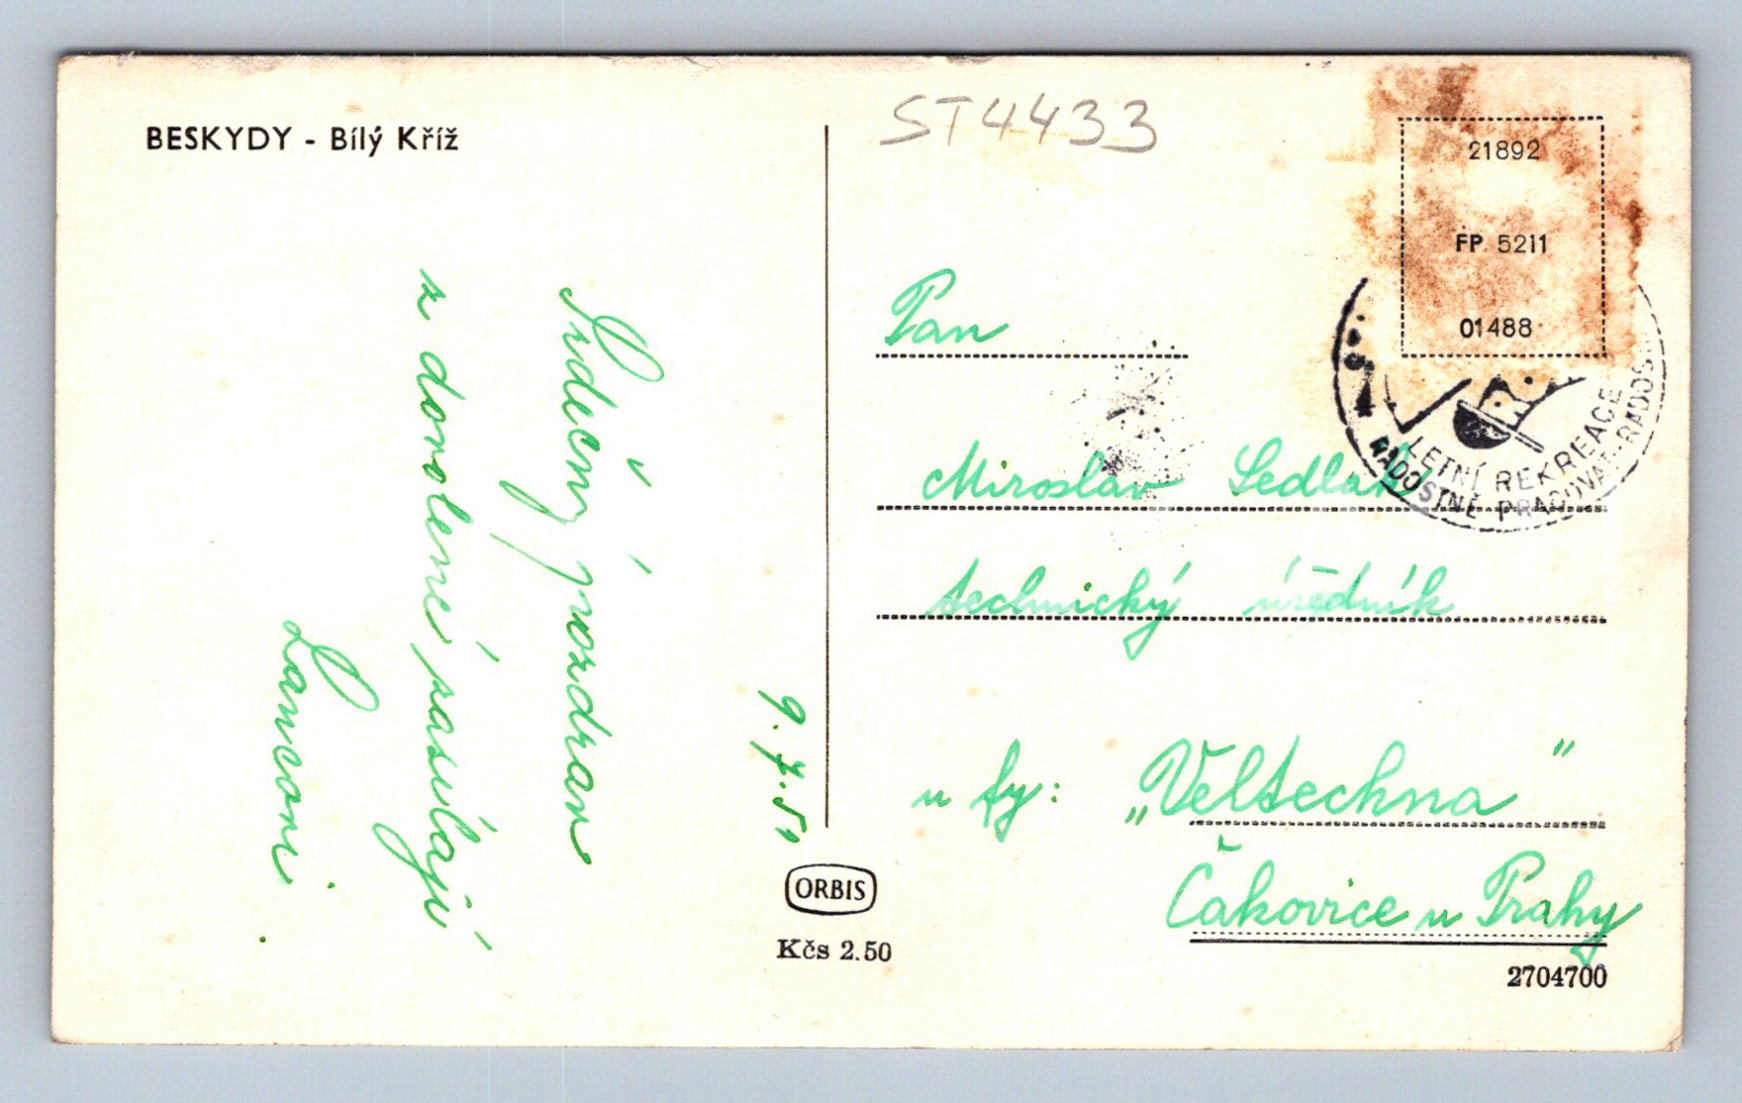 BESKYDY - Bílý Kříž
Srdečný pozdrav
z dovolené zasílají
9.7.51
ORBIS
Kčs 2.50
ST4433
21892
FP 5211
01488
LETNÍ REKREACE
RADOSTNĚ PRACOVAT-RADOS
Pan
Miroslav Sedlák
technický úředník
u fy: „Veltechna"
Čakovice u Prahy
2704700